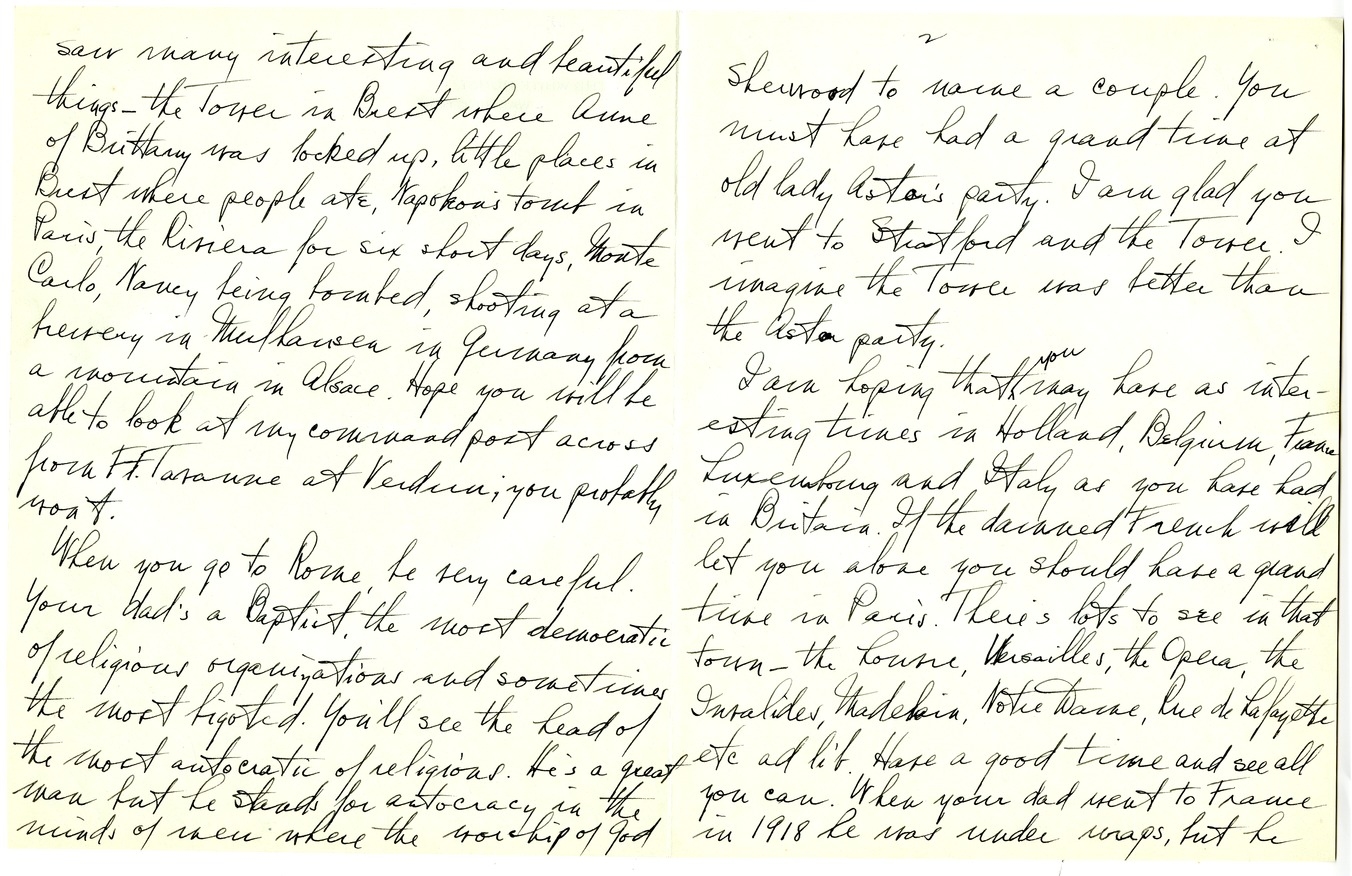 2
Sherwood to name a couple. You
must have had a grand time at
old lady Astor's party. I am glad you
went to Stratford and the Tower. I
imagine the Tower was better than
the Astor party.
I am hoping that you may have as inter-
esting times in Holland, Belgium, France
Luxembourg and Italy as you have had
in Britain. If the damned French will
let you alone you should have a grand
time in Paris. There's lots to see in that
town - the Louvre, Versailles, the Opera, the
Invalides, Madelein, Notre Dame, Rue de Lafayette
etc ad lib. Have a good time and see all
you can. When your dad went to France
in 1918 he was under wraps, but he
saw many interesting and beautiful
things - the Tower in Brest where Anne
of Brittany was locked up, little places in
Brest where people ate, Napoleon's tomb in
Paris, the Riviera for six short days, Monte
Carlo, Nancy being bombed, shooting at a
brewery in Mulhausen in Germany from
a mountain in Alsace. Hope you will be
able to look at my command post across
from Ft. Tavanne at Verdun; you probably
won't.
When you go to Rome, be very careful.
Your dad's a Baptist, the most democratic
of religious organizations and sometimes
the most bigoted. You'll see the head of
the most autocratic of religions. He's a great
man but he stands for autocracy in the
minds of men where the worship of God